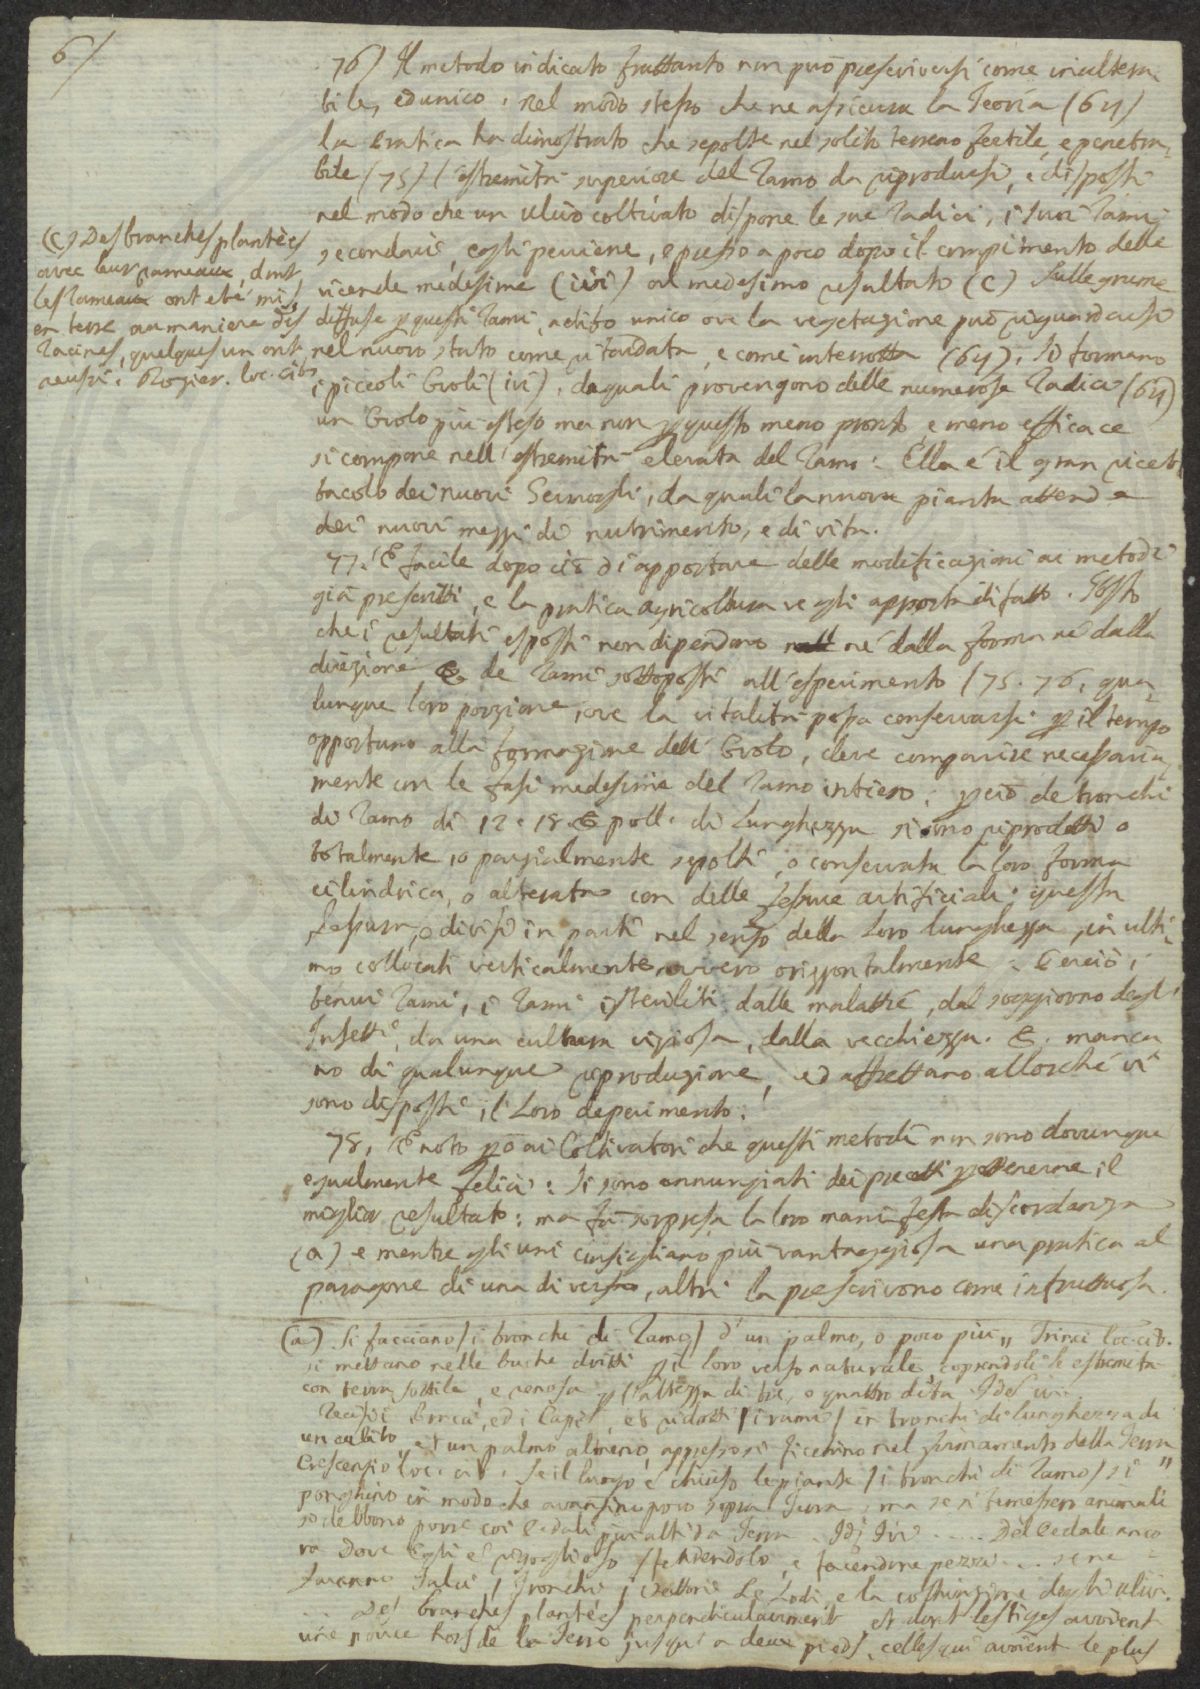 6/
76) Il metodo indicato frattanto non può prescriversi come inaltera-
bile, ed unico. Nel modo stesso che ne assicura la Teoria (64)
la Pratica ha dimostrato che sepolte nel solito terreno fertile, e penetra-
bile (75) l'estremità superiore del Ramo da riprodursi, e disposti
nel modo che un ulivo coltivato dispone le sue Radici, i suoi Rami
secondari, costì perviene, e presso a poco dopo il compimento delle
vicende medesime (ivi) al medesimo resultato (c) Sulle gemme
diffuse p questi Rami, asilo unico ove la vegetazione può riguardarsi
nel nuovo stato come ritardata, e come interrotta (64), Si formano
i piccoli Ovoli (ivi), da quali provengono delle numerose Radici (64)
un Ovolo più esteso ma non p questo meno pronto, e meno efficace
si compone nell'estremità elevata del Ramo: Ella è il gran ricet-
tacolo dei nuovi Germogli, da quali la nuova pianta attende
dei nuovi mezzi di nutrimento, e di vita.
(c) Des branches plantées
avec leur rameaux, dont
les rameaux ont eté mis
en terre au maniere des
racines, quelques un ont
reussi: Rozier. loc. cit.
77. È facile dopo ciò di apportare delle modificazioni ai metodi
già prescritti, e la pratica agricoltura ve gli apporta di fatto. Posto
che i resultati esposti non dipendono né dalla forma né dalla
direzione de Rami sottoposti all'esperimento (75. 76, qua-
lunque loro porzione, ove la vitalità possa conservarsi p il tempo
opportuno alla formazione dell'Ovolo, deve comparire necessaria-
mente con le fasi medesime del Ramo intiero: pciò de tronchi
di Ramo di 12. 18. poll. di Lunghezza si sono riprodotti o
totalmente, o parzialmente sepolti, o conservata la loro forma
cilindrica, o alterata con delle fessure artificiali; questa
fessura, o divisi in parti nel senso della Loro lunghezza, in ulti-
mo collocati verticalmente, ovvero orizzontalmente: Perciò i
tenui Rami, i Rami isteriliti dalle malattie, dal soggiorno degl'
Insetti, da una cultura viziosa, dalla vecchiezza. &. manca
no di qualunque riproduzione, ed affrettano allorché vi
sono disposti, il Loro deperimento.
78. È noto pò ai Coltivatori che questi metodi non sono dovunque
egualmente felici: Si sono annunziati dei precetti p ottenerne il
miglior resultato: ma fa sorpresa la loro manifesta discordanza
(a) e mentre gli uni consigliano più vantaggiosa una pratica al
paragone di una diversa, altri la prescrivono come infruttuosa.
(a) Si facciano / i tronchi di Ramo / d'un palmo, o poco più „ Trinci loc. cit.
si mettano nelle buche dritti p il loro verso naturale coprendoli le estremità
con terra sottile, e renosa p l'altezza di tre, o quattro dita. Idem ivi.
Recisi i Broca, ed i Capi, et ridotti / i rami / in tronchi di lunghezza di
un cubito, et un palmo almeno, appresso si ficchino nel firmamento della Terra
Crescenzio loc. cit. Se il luogo è chiuso le piante / i tronchi di Ramo / si
ponghino in modo che avanzino poco sopra Terra, ma se si temessero animali
si debbono porre coi Pedali più alti da Terra. Idi Ivi ..... Del Pedale anco
ra dove egli è rigoglioso fendendolo, e facendone pezzi .... se ne
faranno Talii / Tronchi / Vettori Le Lodi, e la coltivazione degli ulivi.
... Des branches plantées perpendiculairment et dont les tiges avoient
une pouce hors de la Terre jusqu'a deux pieds, celles qui avoient le plus